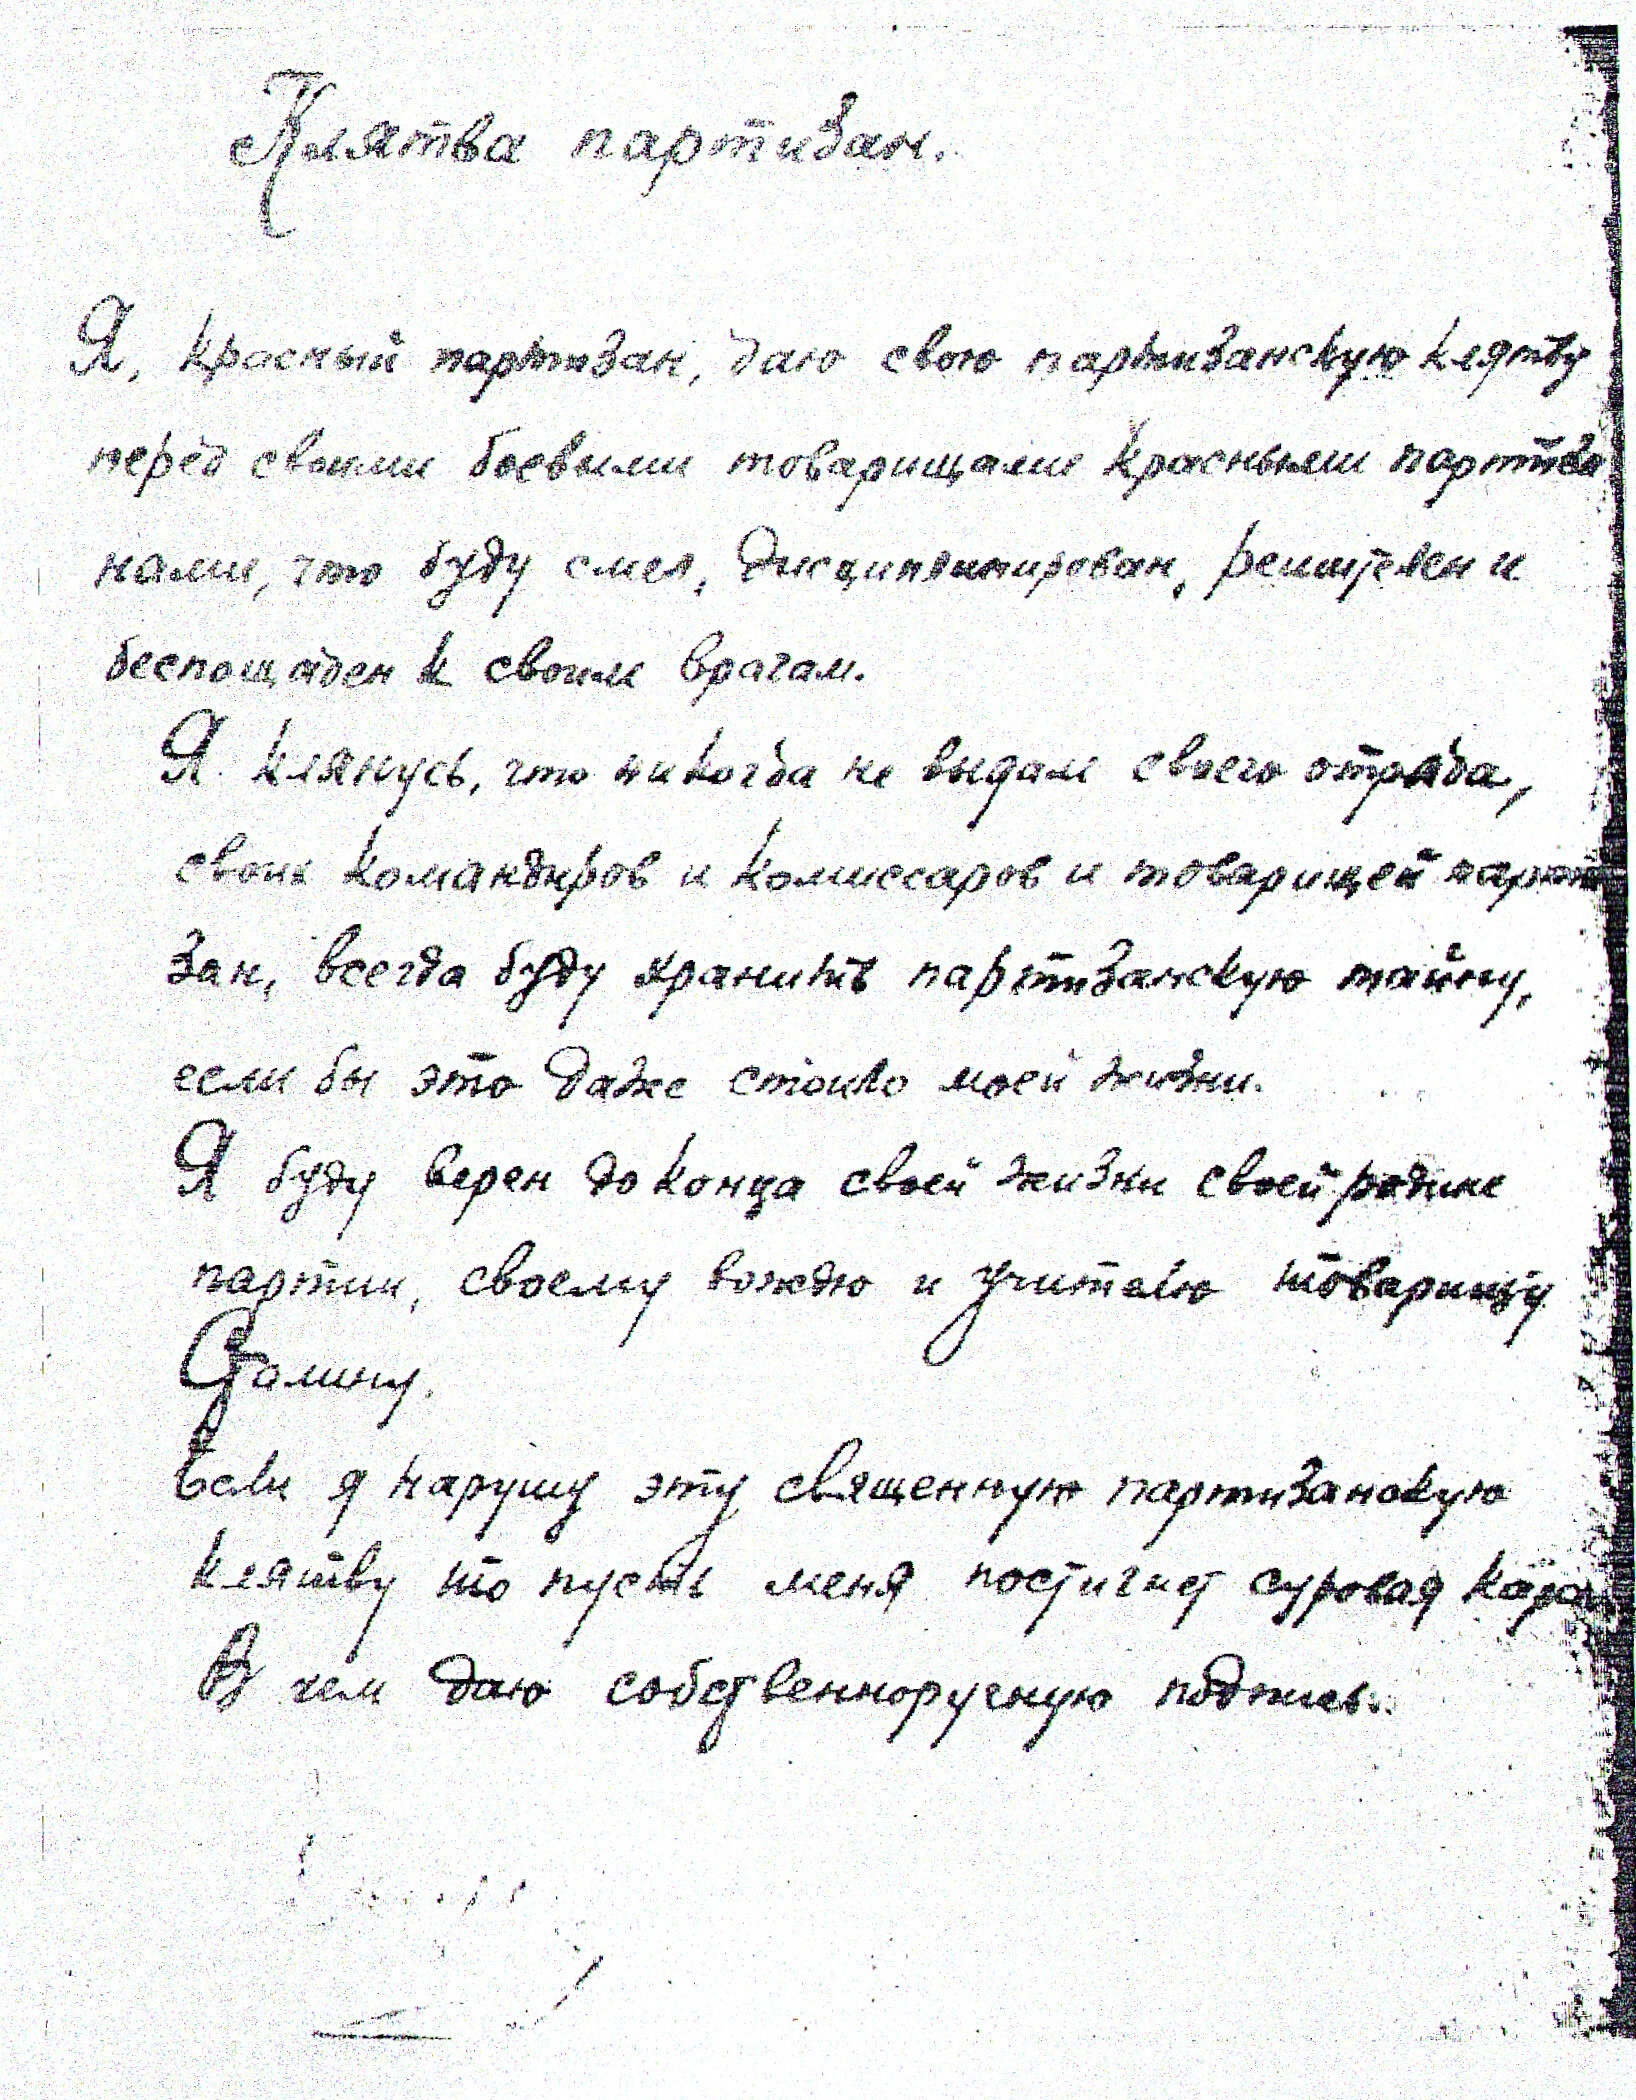 Клятва партизан.
Я, красный партизан, даю свою партизанскую клятву
перед своими боевыми товарищами красными партиза
нами, что буду смел, дисциплинирован, решителен и
беспощаден к своим врагам.
Я клянусь, что никогда не выдам своего отряда,
своих командиров и комиссаров и товарищей парти
зан, всегда буду хранить партизанскую тайну,
если бы это даже стоило моей жизни.
Я буду верен до конца своей жизни своей родине
партии, своему вождю и учителю товарищу
Сталину.
Если я нарушу эту священную партизанскую
клятву то пусть меня постигнет суровая кара
В чем даю собственноручную подпись.